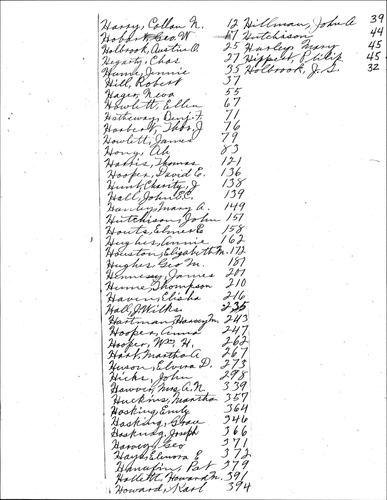 Harry, Collon N. 12 Hillman, John A 39
Hobart, Geo W 17 Hutchison 44
Holbrook, Austin O. 25 Hurley, Mary 45
Hegarty, Chas 27 Hippert, Philip 45
Hume, Jennie 35 Holbrook, J. S. 32
Hill, Robert 37
Hager, Neva 55
Howlett, Ellen 67
Hatheway, Benj. F. 71
Herbert, Thos. J 76
Howlett, James 79
Hong, Ah 83
Harris, Thomas 121
Hooper, David E. 136
Hunt, Charity, J 138
Hall, John E.C. 139
Hanley, Mary A. 149
Hutchison, John 151
Houts, Elmer E 158
Hughes, Annie 162
Houston, Elizabeth M. 172
Hughes Geo M. 187
Hennessy, James 207
Hume, Thompson 210
Haven, Elisha 216
Hall, J. Wilks 235
Hartman, Harvey M. 243
Hooper, Anna 247
Hooper, Wm H. 262
Hart, Martha A 267
Huson, Elvira D. 273
Hicks, John 298
Hawver, Mrs A. N. 339
Huckins, Martha 357
Hosking, Emily 364
Hosking, Grace 346
Hosking, Joseph 366
Harvey, Geo 371
Hays, Elenora E 372
Hanafin, Pat 379
Hallett, Howard N. 391
Howard, Karl 394